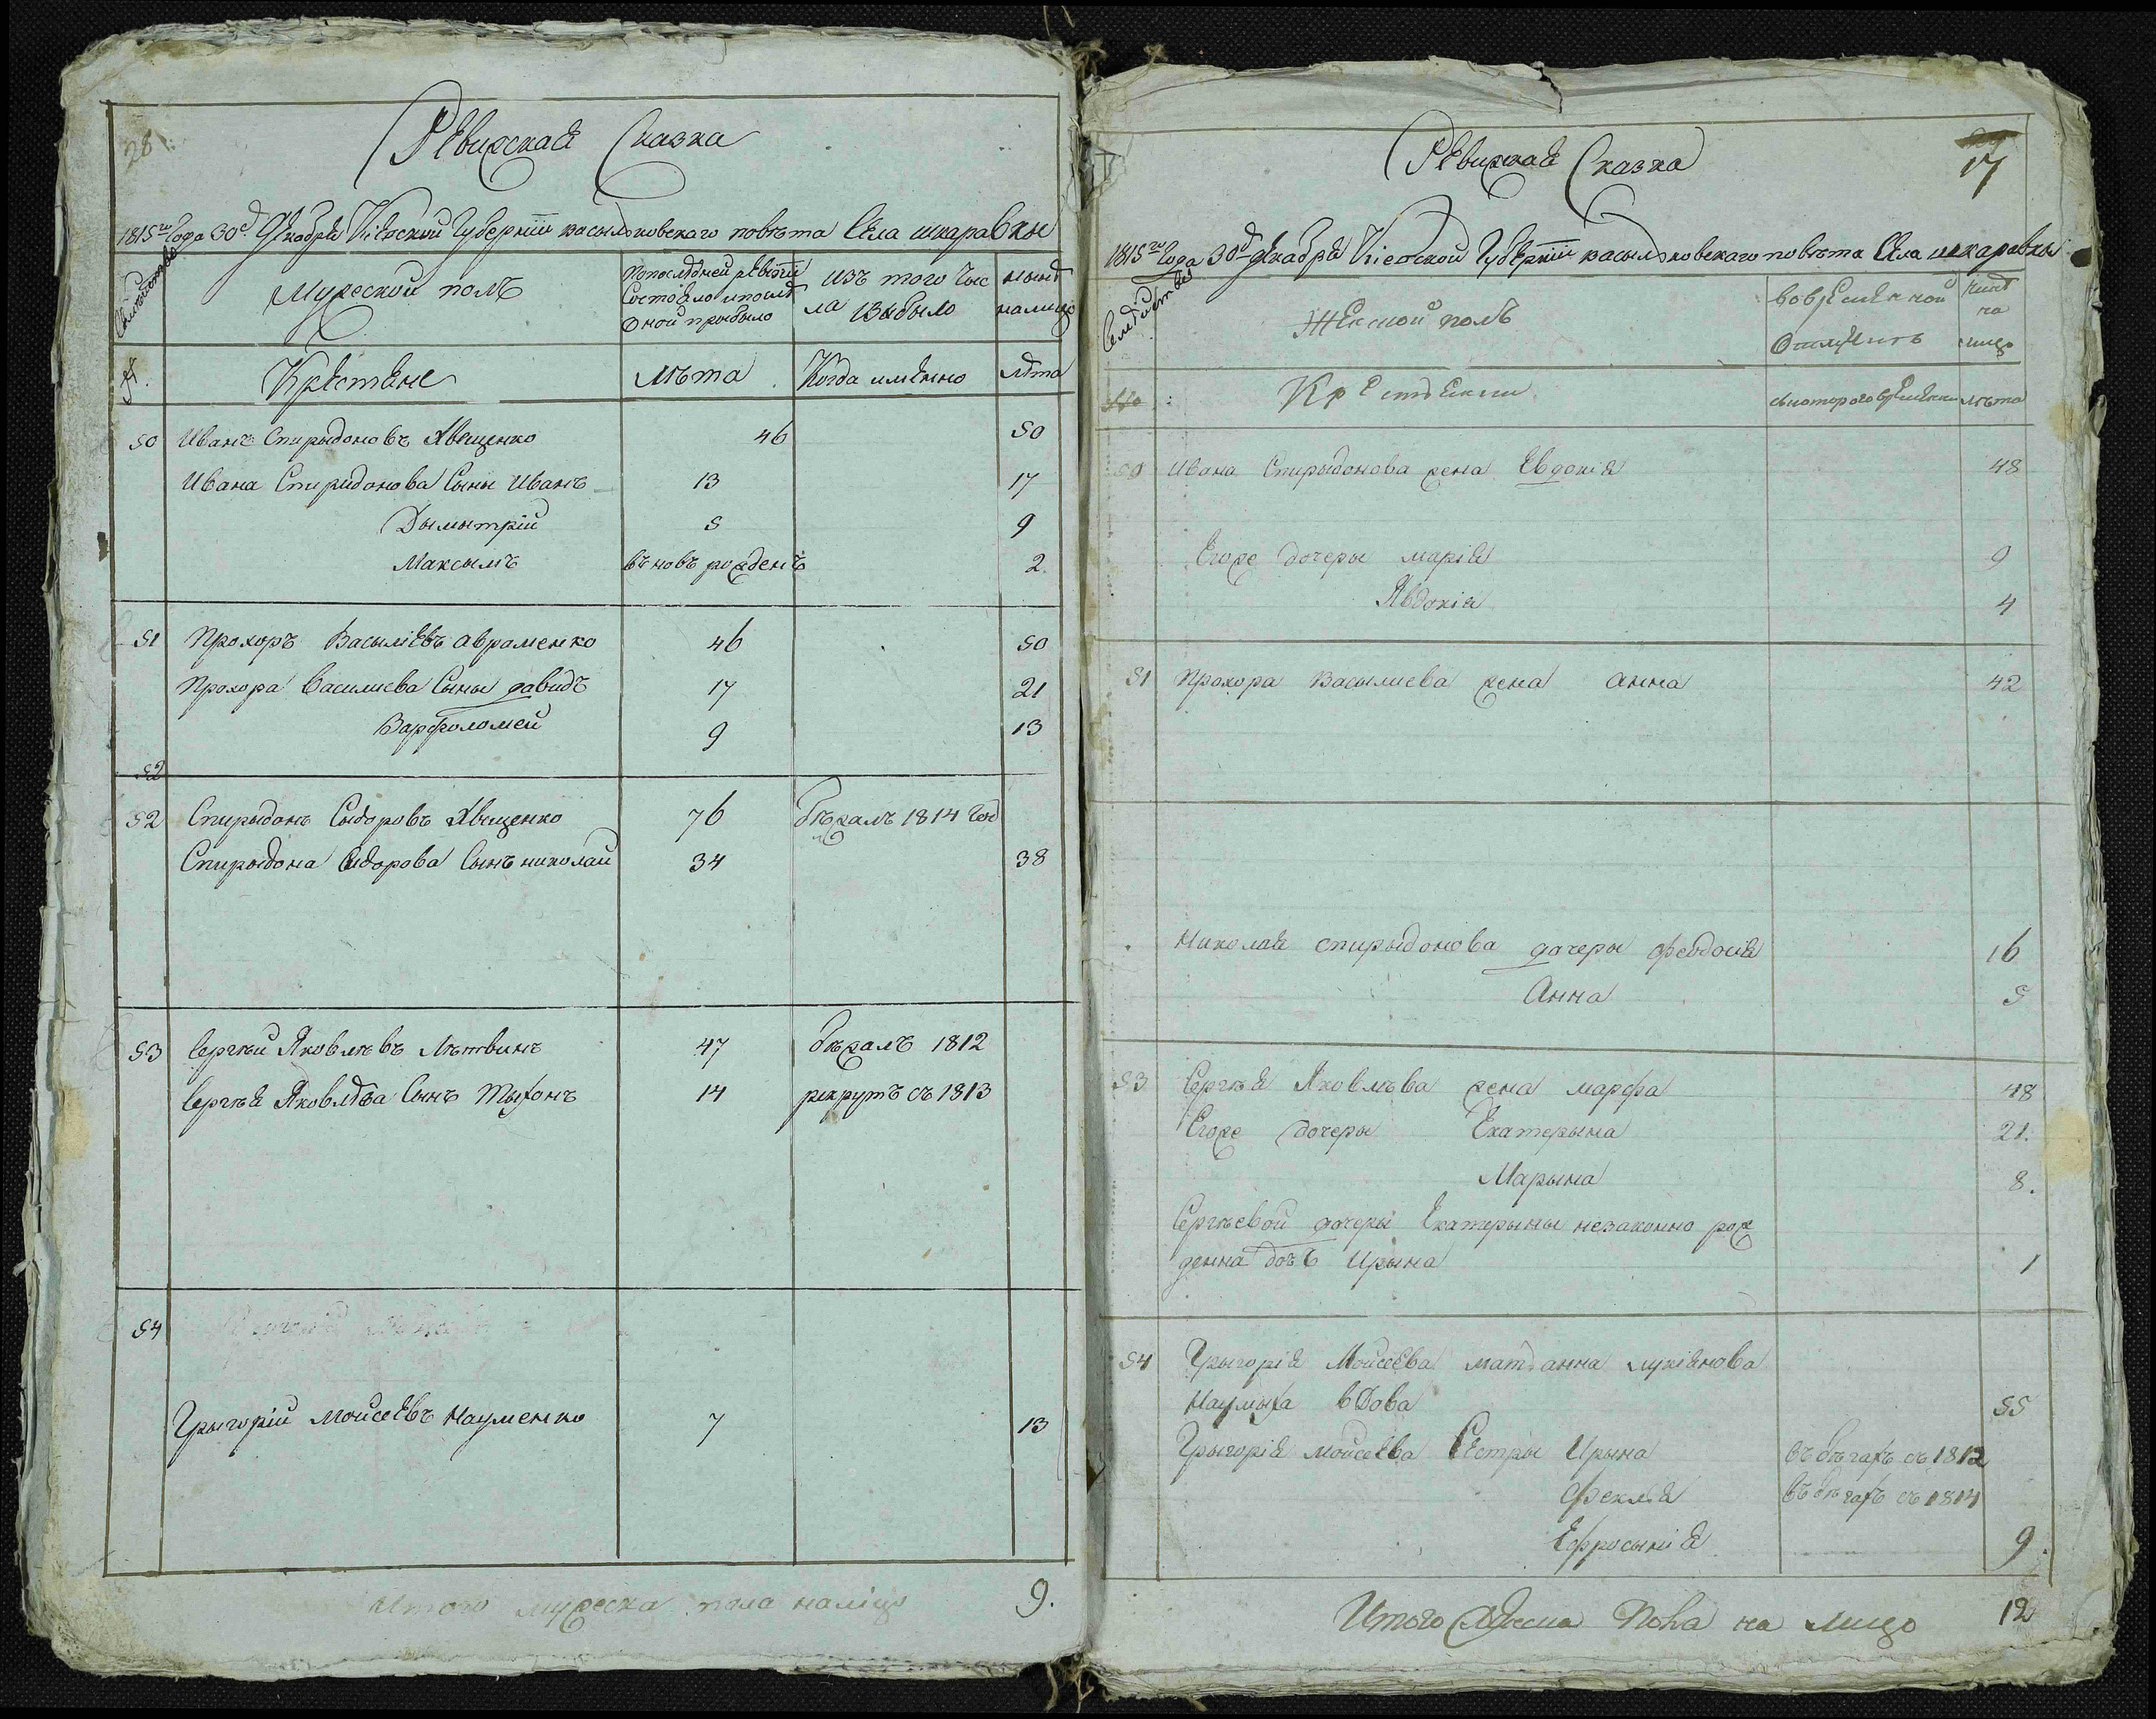 28
Ревизская Сказка
1815го Года 30д Декабря Кіевской Губерніи васильковскаго повѣта Села шкаравки
Семѣйства
Мужеской полъ
Попослѣдней ревизіи
Состояло ипослѣ
Оной прибыло
изъ того чис
ла Выбыло
нынѣ
налицо
№.
Крестяне
Лѣта
Когда имянно
лѣта
50 Иванъ Спирыдоновъ Явщенко 46 50
Ивана Спиридонова Сыны Иванъ 13 17
Дымытрій 5 9
Максымъ вѣновъ рожденъ 2
51 Прохоръ Васыліевъ авраменко 46 50
Прохора Василиева Сыны давидъ 17 21
Варфоломей 9 13
52
52 Спирыдонъ Сыдоровъ Явщенко 76 бѣжалъ 1814 год
Спирыдона Сидорова Сынъ николай 34 38
53 Сергѣй Яковлѣвъ Лѣтвинъ 47 бѣжалъ 1812
Сергѣя Яковлѣва Сынъ Тыхонъ 14 рекрутъ съ 1813
54
Грыгорій Мойсеевъ Науменко 7 13
Итого мужеска пола налицо 9.
Ревизская Сказка
17
1815го Года 30д декабря Кіевской Губерніи васыльковскаго повѣта Села шкаравки
Семѣйства
Женской полъ
Вовременной
Отлучкѣ
нынѣ
на
лицо
№
Крестянки
съкоторого времени
лѣта
50 Ивана Спирыдонова жена Евдокія 48
Егоже дочеры марія 9
Явдокія 4
51 Прохора Васылиева жена анна 42
Николая спирыдонова дочеры феодосія 16
Анна 5
53 Сергѣя Яковлѣва жена марфа 48
Егоже дочеры Екатерына 21.
Марына 8.
Сергѣевой дочеры Екатерыны незаконно рож
денна дочъ Ирына 1
54 Грыгорія Мойсеева мать анна лукіянова
Наумыха вдова 55
Грыгорія мойсеева Сестры Ирына въ бѣгахъ съ 1812
Феклія въ бѣгахъ съ 1814
Ефросынія 9.
Итого Женска Пола на лицо 12